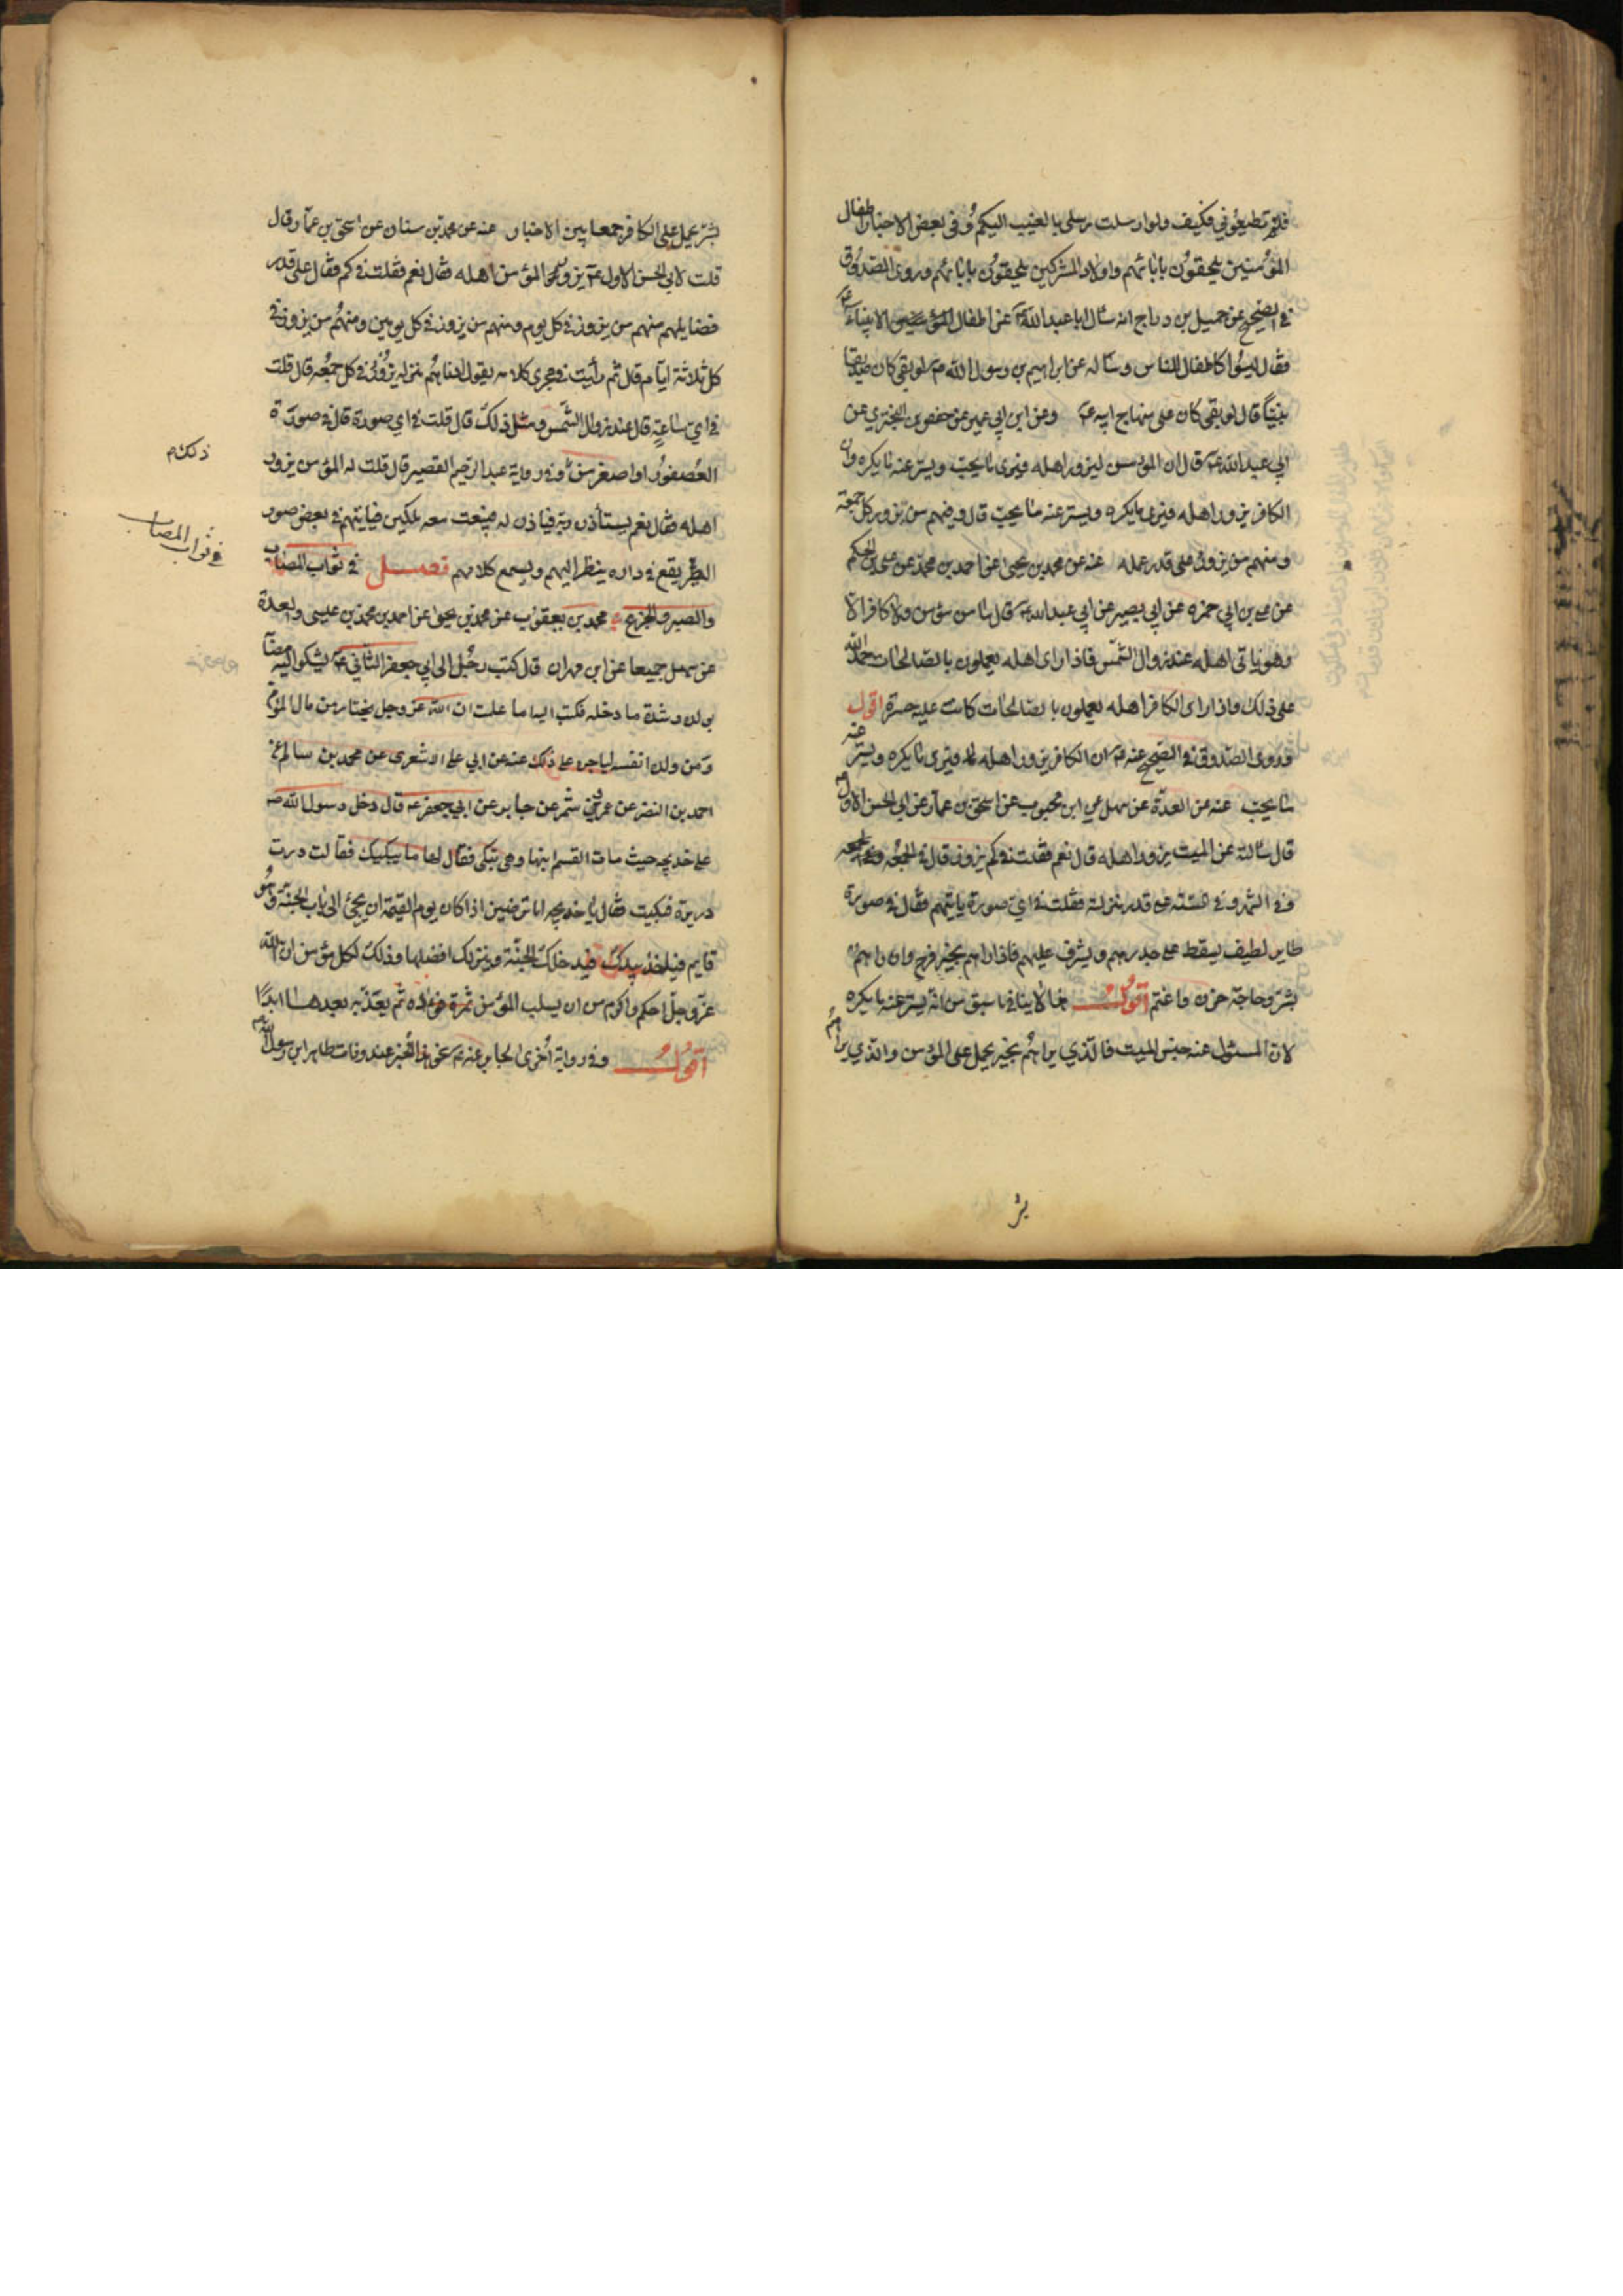 فلم تطيعوني فكيف ولو ارسلت رسلي بالغيب اليكم وفي بعض الاخبار اطفال
المؤمنين يلحقون بابائهم واولاد المشركين يلحقون بابائهم وروى الصدوق
في الصحيح عن جميل بن دراج انه سئال ابا عبد الله ع عن اطفال الانبياء ع
فقال ليسوا كاطفال الناس وسئاله عن ابراهيم بن رسول الله ص لو بقي كان صديقا
نبيّاً قال لو بقي كان على منهاج ابيه ع وعن ابن ابي عمير عن حفص بن البختري عن
ابي عبد الله ع قال ان المؤمن ليزور اهله فيرى ما يحبّ ويستر عنه ما يكره وان
الكافر يزور اهله فيرى ما يكره ويستر عنه ما يحبّ قال ومنهم من يزور كل جمعة
ومنهم من يزور على قدر عمله عنه عن محمد بن يحيى عن احمد بن محمد عن علي بن الحكم
عن علي بن ابي حمزه عن ابي بصير عن ابي عبد الله ع قال ما من مؤمن ولا كافر الا
وهو ياتى اهله عند زوال الشمس فاذا راى اهله يعملون بالصالحات حمد الله
على ذلك واذا راى الكافر اهله يعملون بالصالحات كانت عليه حسرة اقول
وروى الصدوق في الصحيح عنه ع ان الكافر يزور اهله فيرى ما يكره ويستر عنه
ما يحبّ عنه عن العدّة عن سهل عن ابن محبوب عن اسحق بن عمار عن ابي الحسن الاول ع
قال سئالته عن الميت يزور اهله قال نعم فقلت في كم يزور قال في الجمعه
وفي الشهر وفي السنة على قدر منزلته فقلت في ايّ صورة ياتيهم فقال في صورة
طاير لطيف يسقط على جدرهم ويشرف عليهم فاذا راهم بخير فرح وان راهم
بشرّ وحاجة حزن واغتم اقول هذا لا ينافي ما سبق من انّه يستر عنه ما يكره
لان المسئول عنه جنس الميت فالّذي يراهُم بخير يحمل على المؤمن والذي يراهم
بشر
بشرّ يحمل على الكافر جمعا بين الاخبار عنه عن محمد بن سنان عن اسحق بن عمار قال
قلت لابي الحسن الاول ع يزور المؤمن اهله فقال نعم فقلت في كم فقال على قدر
فضايلهم منهم من يزور في كل يوم ومنهم من يزور في كل يومين ومنهُم من يزور في
كل ثلاثة ايّام قال ثم رأيت في مجرى كلامه يقول ادناهُم منزله يزُورُ في كل جمُعه قال قلت
في ايّ ساعةٍ قال عند زوال الشّمس ومثل ذلك قال قلت في اي صورة قال في صورة
العُصفور او اصغر من وفي رواية عبد الرّحيم القصير قال قلت له المؤمن يزور
اهله فقال نعم يستأذن ربّه فياذن له فيبعث معه ملكين فيايتهم في بعض صور
الطير يقع في داره ينظر اليهم ويسمع كلامهم فصل في ثواب المصاب
والصبر والجزع محمد بن يعقوب عن محمد بن يحيى عن احمد بن محمد بن عيسى والعدة
عن سهل جميعا عن ابن مهران قال كتب رجُل الى ابي جعفر الثاني ع يشكو اليه مصابه
بولده وشدة ما دخله فكتب اليه اما علمت ان الله عزّ وجل يختار من مال المؤمن
ومن ولده انفسه لياجره على ذلك عنه عن ابي علي الاشعري عن محمد بن سالم عن
احمد بن النضر عن عمرو بن شمر عن جابر عن ابي جعفر ع قال دخل رسول الله ص
على خديجه حيث مات القسم ابنها وهي تبكي فقال لها ما يبكيك فقالت درت
دريرة فبكيت فقال يا خديجه اما ترضين اذا كان يوم القيمة ان تجئ الى باب الجنّة وهُو
قايم فيأخذ بيدك فيدخلك الجنّة وينزلك افضلها وذلك لكل مؤمن ان الله
عزّ وجلّ احكم واكرم من ان يسلب المؤمن ثمرة فؤاده ثم يعذّبه بعدها ابدًا
اقول وفي رواية اُخرى لجابر عنه ع نحو هذا الخبر عند وفات طاهر ابن رسول الله ص
ذلك م
في ثواب المصاب